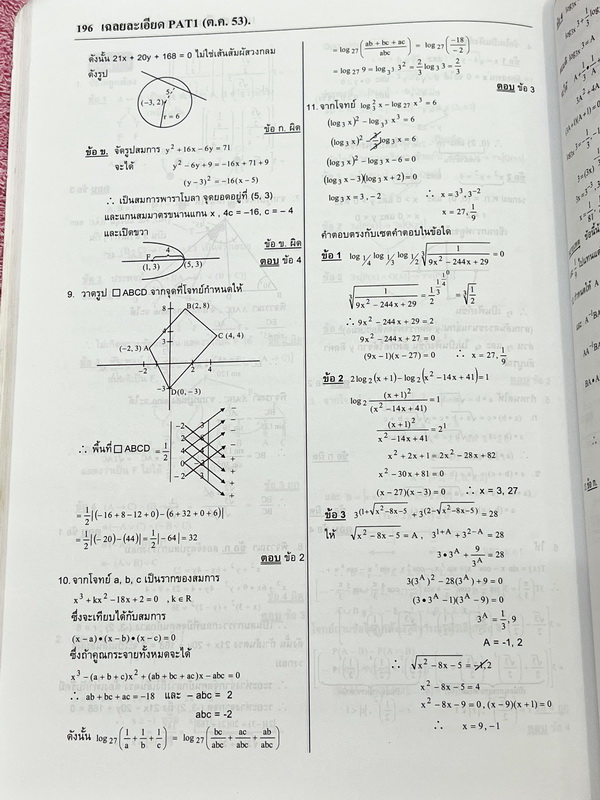 196 เฉลยละเอียด PAT1 (ต.ค. 53).
ดังนั้น 21x + 20y + 168 = 0 ไม่ใช่เส้นสัมผัสวงกลม
ดังรูป
5
(−3, 2)
r = 6
ข้อ ก. ผิด
ข้อ ข. จัดรูปสมการ y² + 16x − 6y = 71
จะได้ y² − 6y + 9 = −16x + 71 + 9
(y − 3)² = −16(x − 5)
∴ เป็นสมการพาราโบลา จุดยอดอยู่ที่ (5, 3)
และแกนสมมาตรขนานแกน x , 4c = −16, c = − 4
และเปิดขวา
4
F
(1, 3) (5, 3)
ข้อ ข. ผิด
ตอบ ข้อ 4
9. วาดรูป □ ABCD จากจุดที่โจทย์กำหนดให้
8
B(2, 8)
4
C (4, 4)
3
(−2, 3) A
−2 2 4
−3
D(0, −3)
∴ พื้นที่ □ ABCD = 1/2
−2 3
2 8
4 4
0 −3
−2 3
− − − − + + + +
= 1/2 |(−16 + 8 − 12 + 0) − (6 + 32 + 0 + 6)|
= 1/2 |(−20) − (44)| = 1/2 |−64| = 32
ตอบ ข้อ 2
10. จากโจทย์ a, b, c เป็นรากของสมการ
x³ + kx² − 18x + 2 = 0 , k ∈ R
ซึ่งจะเทียบได้กับสมการ
(x − a)•(x − b)•(x − c) = 0
ซึ่งถ้าคูณกระจายทั้งหมดจะได้
x³ − (a + b + c)x² + (ab + bc + ac)x − abc = 0
∴ ab + bc + ac = −18 และ − abc = 2
abc = -2
ดังนั้น log₂₇(1/a + 1/b + 1/c) = log₂₇(bc/abc + ac/abc + ab/abc)
= log₂₇((ab + bc + ac)/abc) = log₂₇(−18/−2)
= log₂₇ 9 = log₃³ 3² = 2/3 log₃ 3 = 2/3
ตอบ ข้อ 3
11. จากโจทย์ log₃² x − log₂₇ x³ = 6
(log₃ x)² − log₃³ x³ = 6
(log₃ x)² − 3/3 log₃ x = 6
(log₃ x)² − log₃ x − 6 = 0
(log₃ x − 3)(log₃ x + 2) = 0
log₃ x = 3, −2 ∴ x = 3³, 3⁻²
x = 27, 1/9
คำตอบตรงกับเซตคำตอบในข้อใด
ข้อ 1 log 1/4 log 1/3 log 1/2 ³√(1/(9x² − 244x + 29)) = 0
³√(1/(9x² − 244x + 29)) = 1/2^(1/3^(1/4^0)) = ³√(1/2)
∴ 9x² − 244x + 29 = 2
9x² − 244x + 27 = 0
(9x − 1)(x − 27) = 0 ∴ x = 27, 1/9
ข้อ 2 2 log₂(x + 1) − log₂(x² − 14x + 41) = 1
log₂ (x + 1)²/(x² − 14x + 41) = 1
(x + 1)²/(x² − 14x + 41) = 2¹
x² + 2x + 1 = 2x² − 28x + 82
x² − 30x + 81 = 0
(x − 27)(x − 3) = 0 ∴ x = 3, 27
ข้อ 3 3^(1+√(x²−8x−5)) + 3^(2−√(x²−8x−5)) = 28
ให้ √(x² − 8x − 5) = A , 3^(1+A) + 3^(2−A) = 28
3•3^A + 9/3^A = 28
3(3^A)² − 28(3^A) + 9 = 0
(3•3^A − 1)(3^A − 9) = 0
3^A = 1/3, 9
A = -1, 2
∴ √(x² − 8x − 5) = −1, 2
x² − 8x − 5 = 4
x² − 8x − 9 = 0, (x − 9)(x + 1) = 0
∴ x = 9, −1